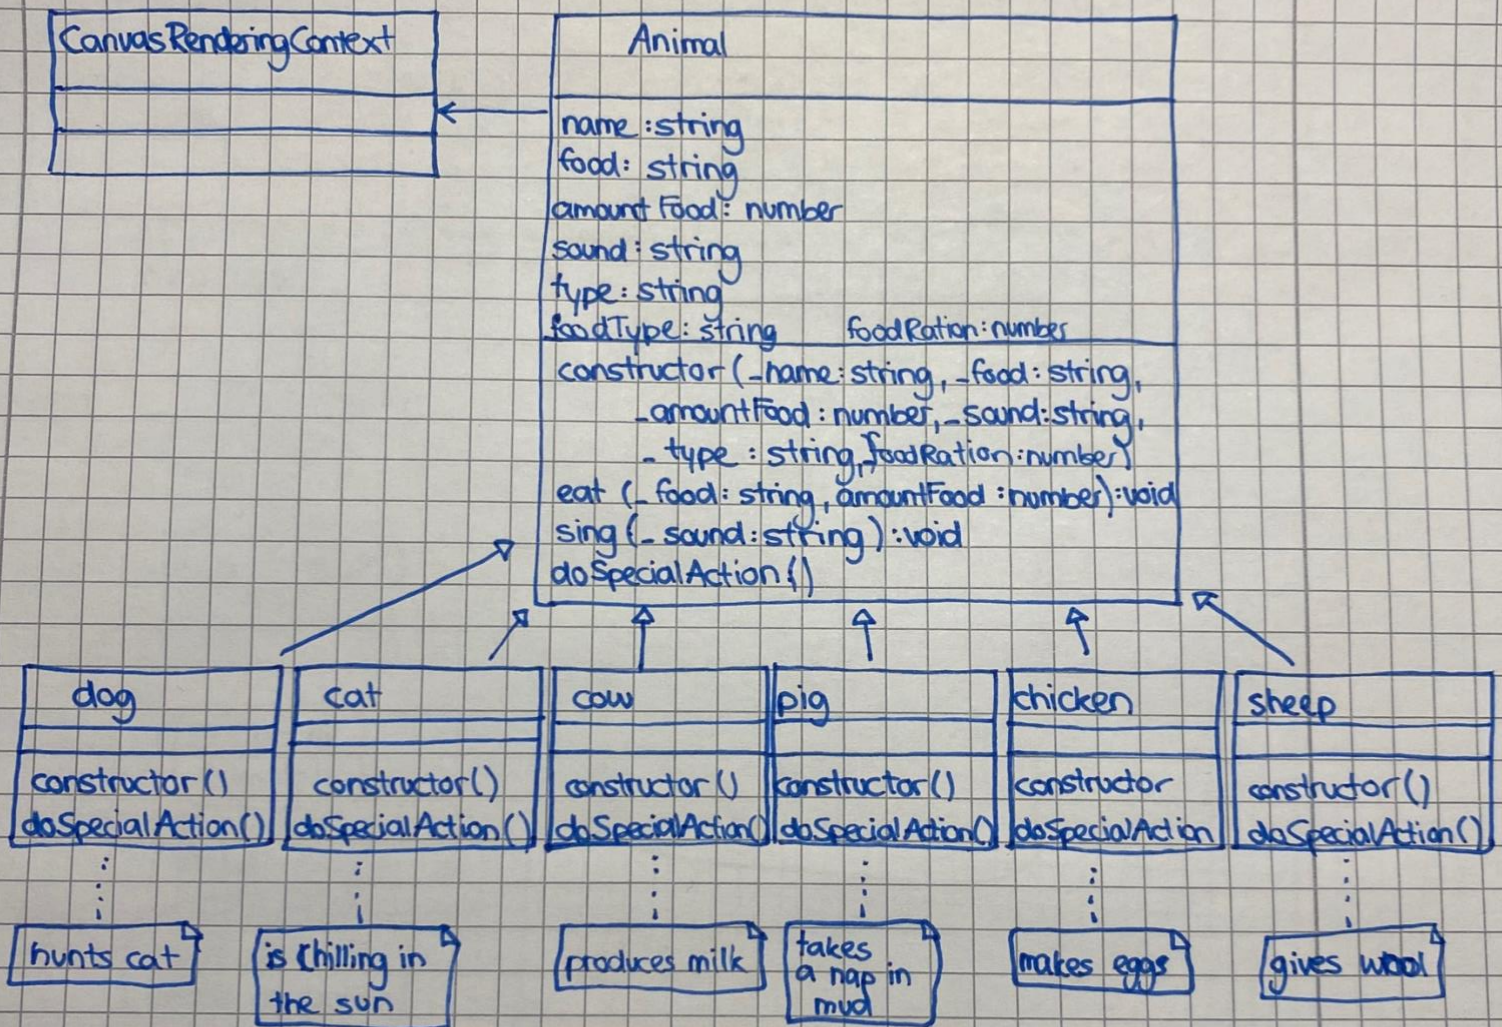 CanvasRenderingContext
Animal
name:string
food: string
amountFood: number
sound: string
type: string
foodType: string foodRation:number
constructor(_name:string, _food:string,
_amountFood:number,_sound:string,
_type:string,foodRation:number)
eat (_food: string, amountFood:number):void
sing(_sound:string):void
doSpecialAction()
dog
constructor()
doSpecialAction()
hunts cat
cat
constructor()
doSpecialAction()
is chilling in
the sun
cow
constructor()
doSpecialAction()
produces milk
pig
constructor()
doSpecialAction()
takes
a nap in
mud
chicken
constructor
doSpecialAction
makes eggs
sheep
constructor()
doSpecialAction()
gives wool